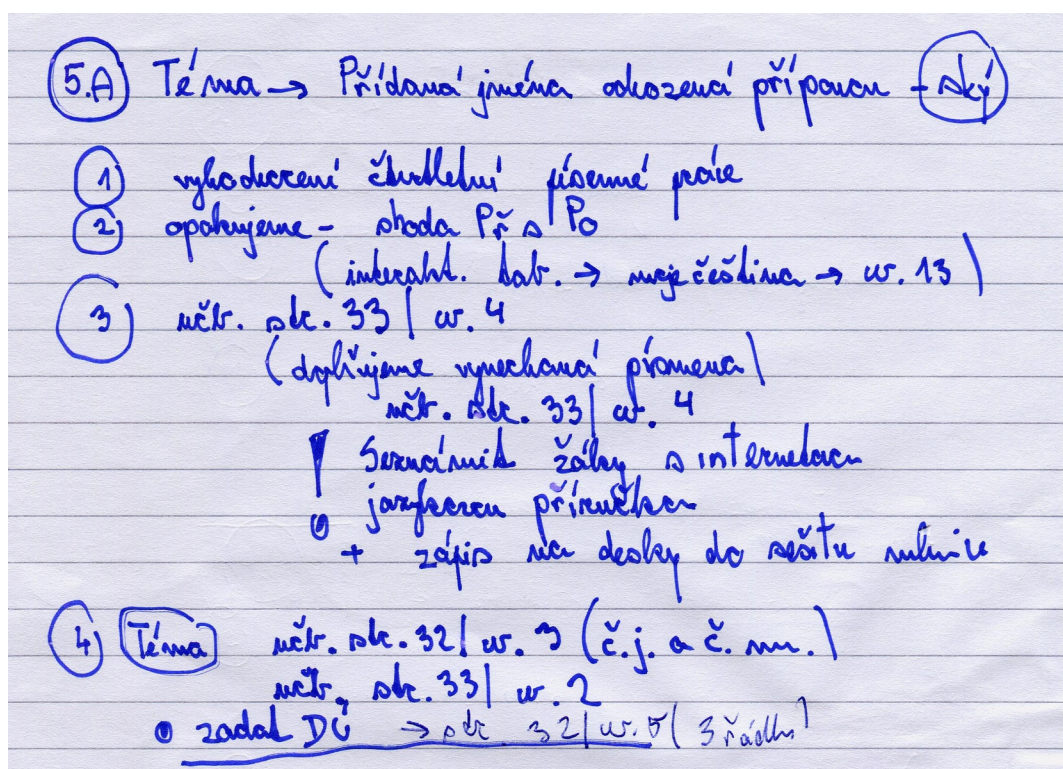 5.A Téma → Přídavná jména odvozená příponou -ský
1 vyhodnocení čtvrtletní písemné práce
2 opakujeme - shoda Př s Po
(interakt. tab. → moje čeština → cv. 13)
3 učb. str. 33/ cv. 4
(doplňujeme vynechaná písmena)
učb. str. 33/ cv. 4
! Seznámit žáky s internetovou
jazykovou příručkou
+ zápis na desky do sešitu
4 Téma učb. str. 32/ cv. 3 (č.j. a č. mn.)
učb. str. 33/ cv. 2
• zadat DÚ → str. 32/ cv. 5 (3 řádky)